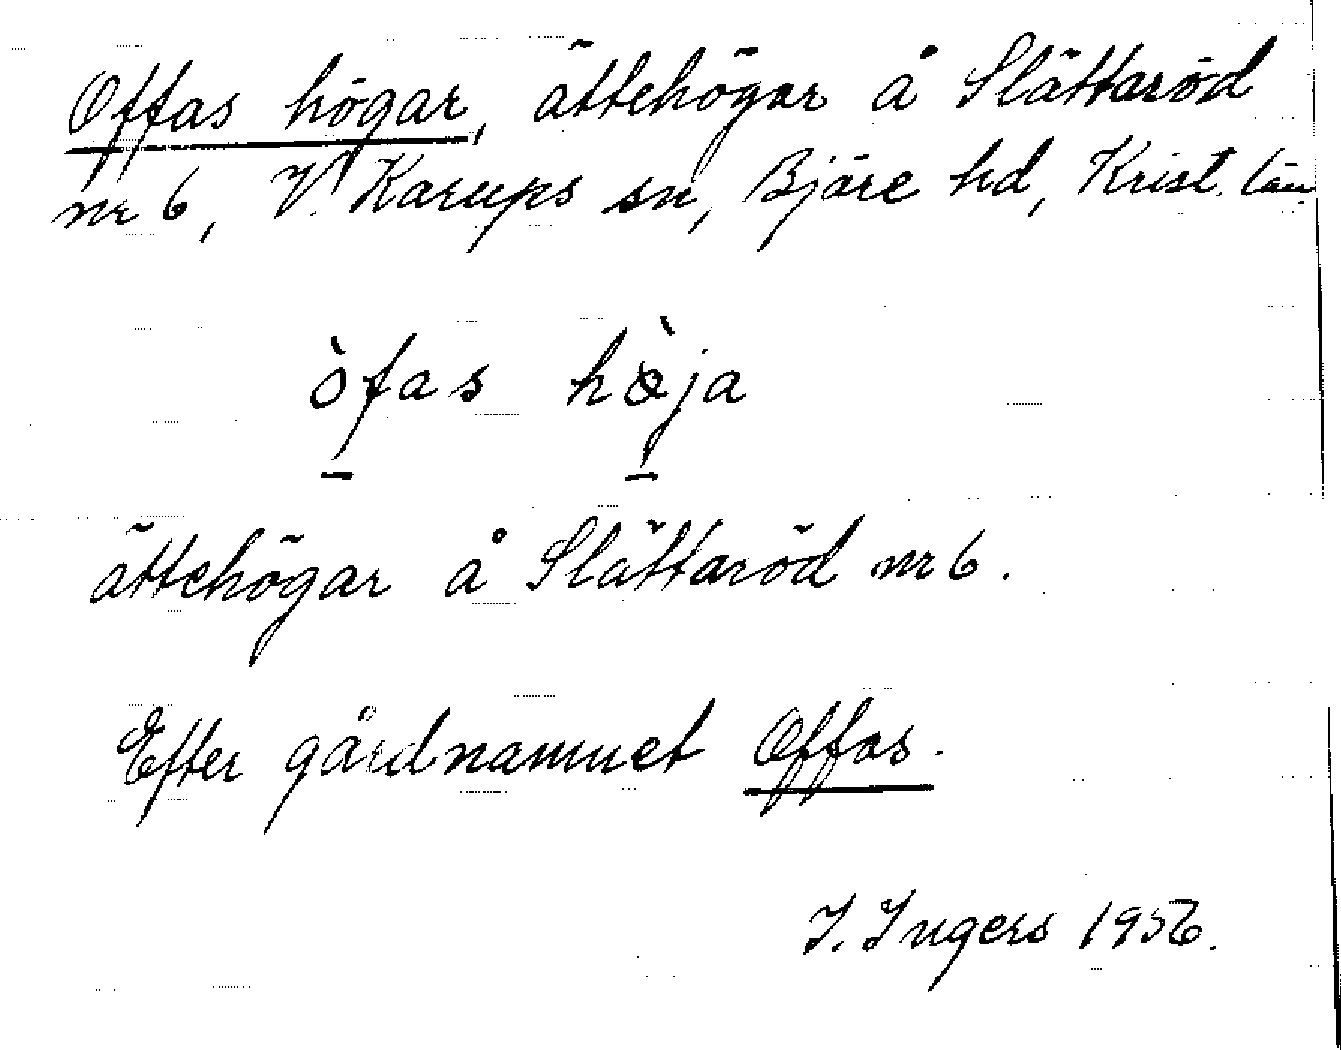 Offas högar, ättehögar å Slättaröd
nr 6, V. Karups sn, Bjäre hd, Krist. län.
òfas hø̀ja
ättehögar å Slättaröd nr 6.
Efter gårdnamnet Offas.
I. Ingers 1956.